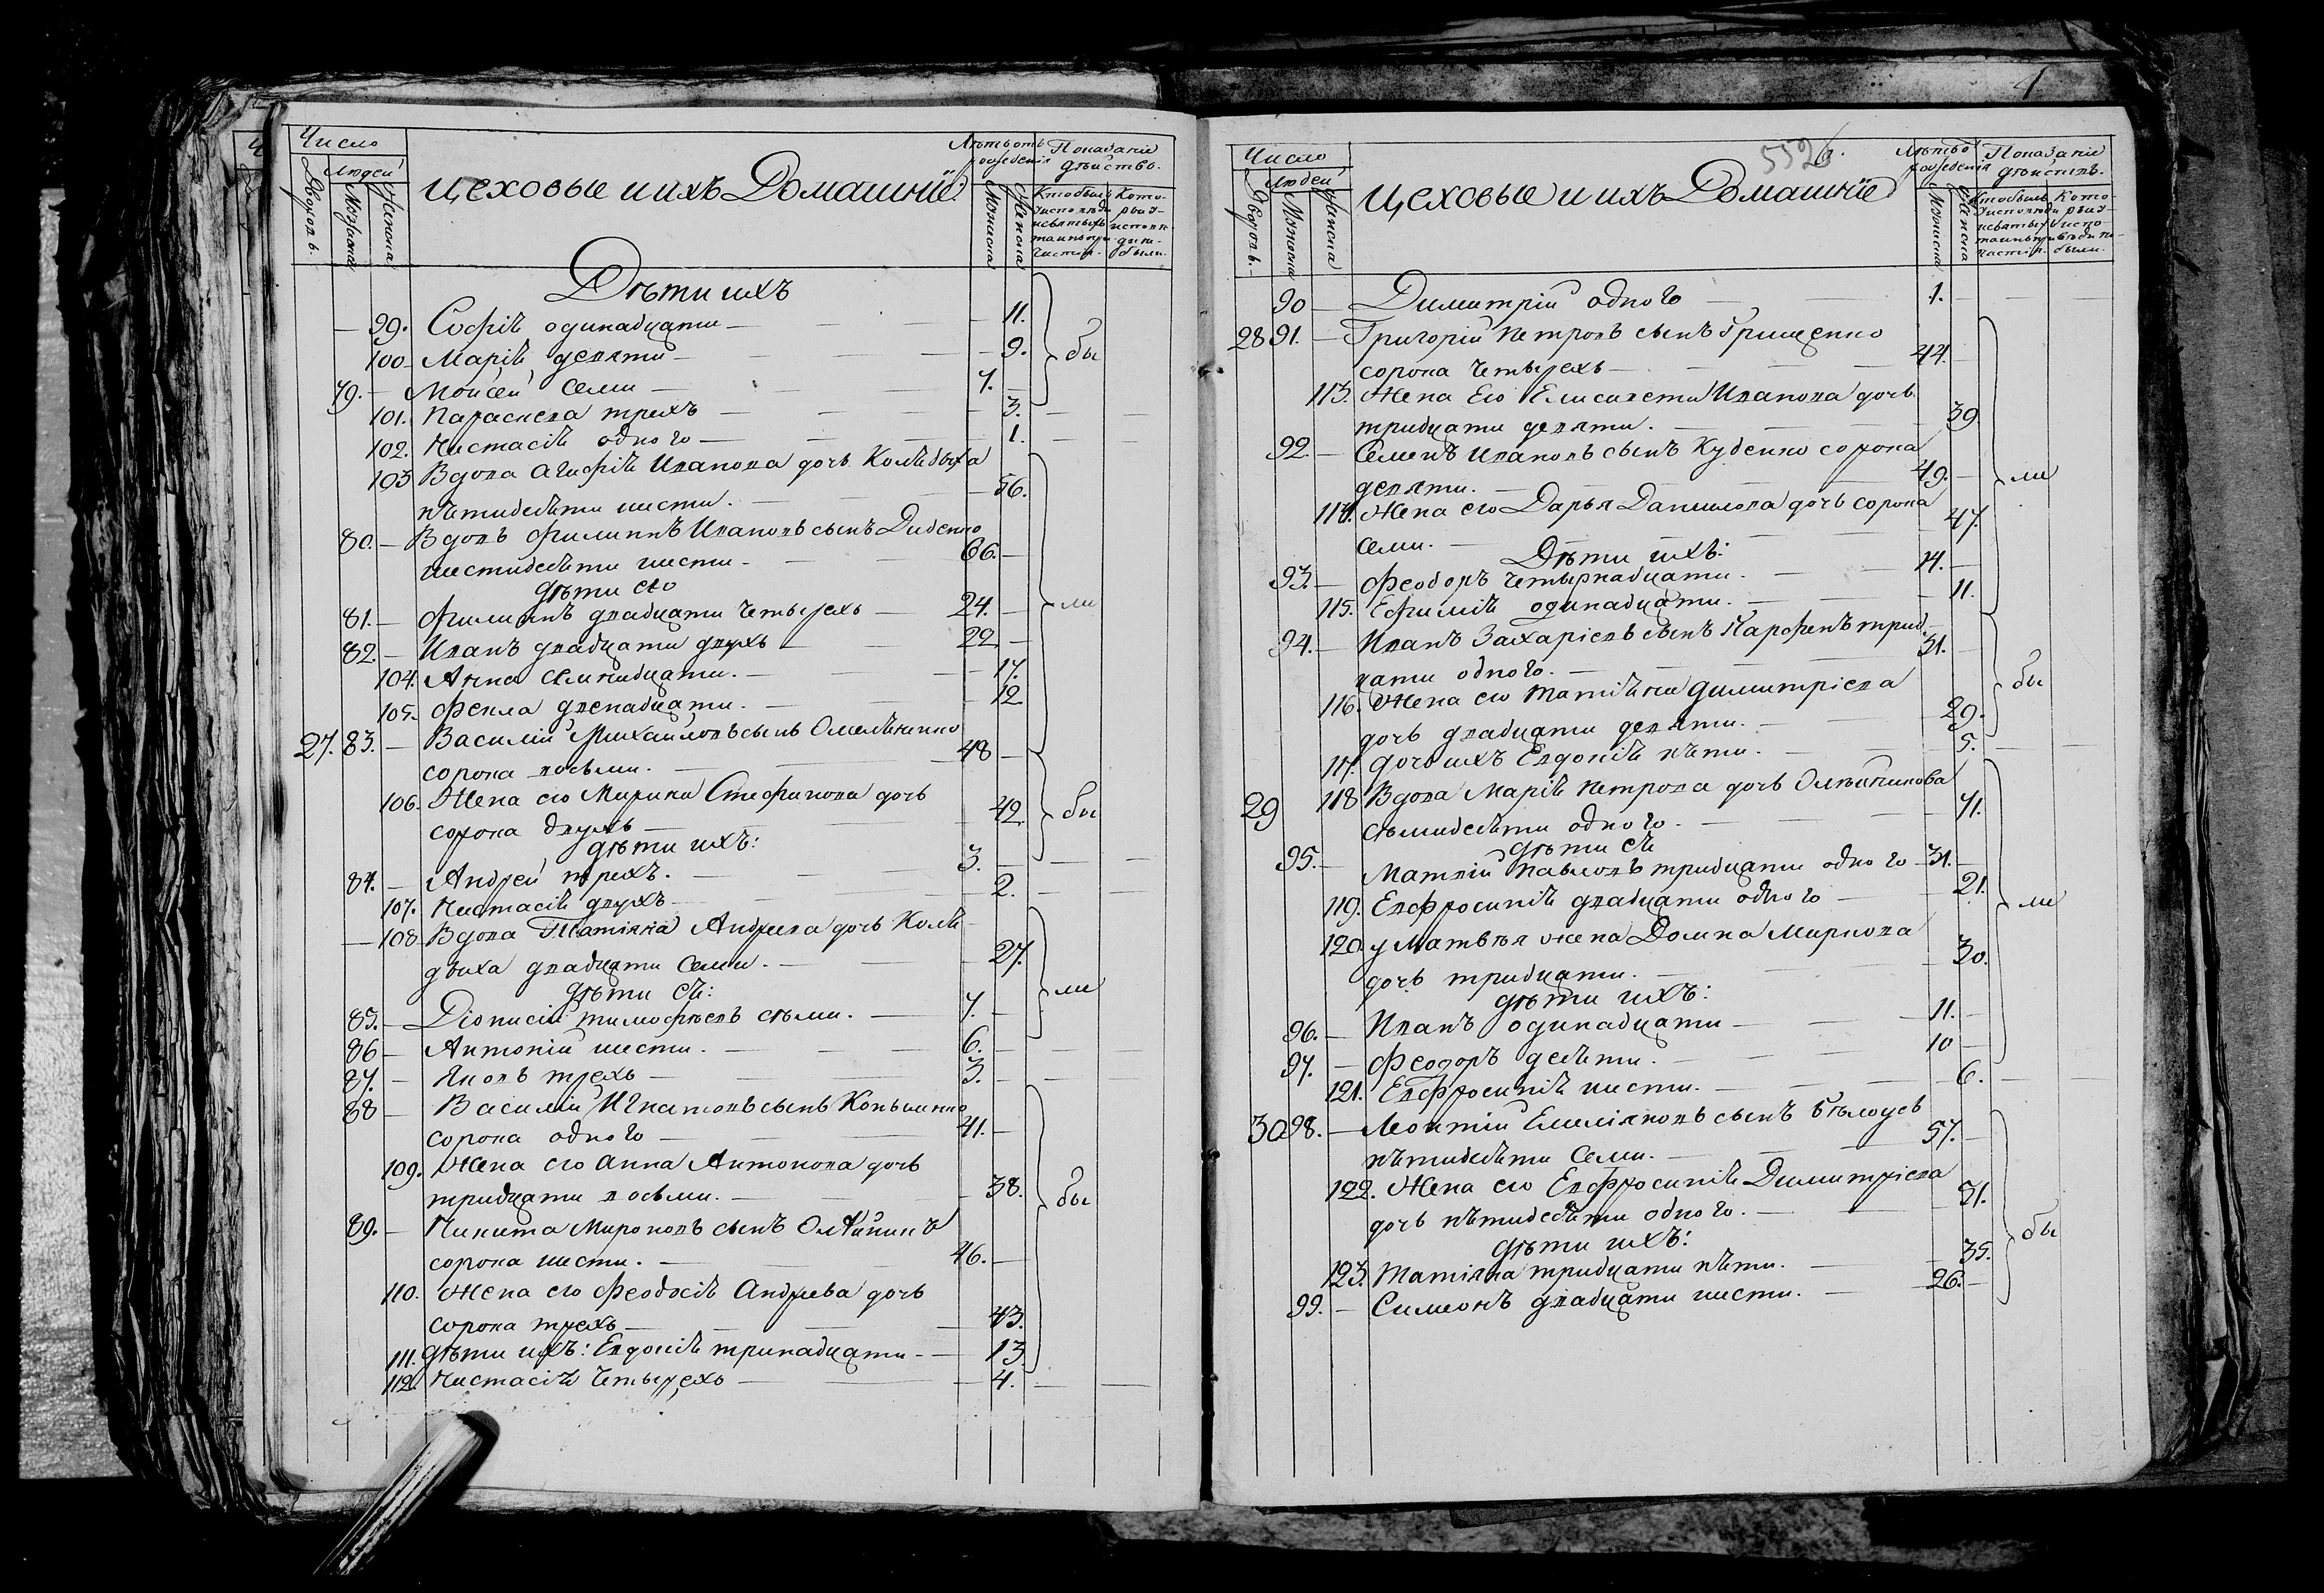 Число
Людей
Дворовъ.
Мужеска
Женска
Цеховые и ихъ Домашніе.
Лѣтъ отъ рожденія
Мужеска
Женска
Показаніе дѣйство.
Дѣти ихъ
99. Софіѣ одинадцати 11.
100 Маріѣ девяти 9. бы
79. Моисей семи 7.
101. Параскева трехъ 3.
102. Настасіѣ одного 1.
103 Вдова Агафіѣ Иванова дочь
пѣтидесѣти шести. 56.
80. Вдовъ Филиппъ Ивановъ сынъ Диденко
шестидесѣти шести 66.
дѣти его
81. Филиппъ двадцати четырехъ 24. ли
82. Иванъ двадцати двухъ 22
104. Анна семнадцати. 17.
105. Фекла двенадцати. 12
27. 83. Василій Михайловъ сынъ Омелѣненко
сорока восьми. 48
106. Жена его Марина Стефанова дочь
сорока двухъ 42. бы
дѣти ихъ:
84. Андрей трехъ. 3.
107. Настасіѣ двухъ 2.
108 Вдова Татіяна Андреева дочьКолѣ
двиха двадцати семи. 27.
дѣти еѣ: ли
85. Діонисій Тимофѣевъ сѣми. 7.
86 Антоній шести. 6.
87. Яковъ трехъ 3.
88 Василій Игнатовъ сынъ
сорока одного 41.
109. Жена его Анна Антонова дочь
тридцати восьми. 38. бы
89. Никита Мироновъ сынъ Олѣйникъ
сорока шести. 46.
110. Жена его Феодосіѣ Андрева дочь
сорока трехъ 43.
111. дѣти ихъ: Евдокіѣ тринадцати 13
112. Настасіѣ четырехъ 4.
Число
Людей
Дворовъ.
Мужеска
Женска
Цеховые и ихъ Домашніе
Показаніе
90 Димитрій одного 1.
28 91. Григорій Петровъ сынъ Грищенко
сорока четырехъ 44.
113. Жена его Елисавета Иванова дочь
тридцати девяти. 39
92. Семенъ Ивановъ сынъ Куденко сорока
девяти. 49. ли
114. Жена его Дарья Данилова дочь сорока
семи. 47.
Дѣти ихъ:
93. Феодоръ четырнадцати. 14.
115. Ефиміѣ одинадцати. 11.
94. Иванъ Захаріевъ сынъ Парфенъ трид
цати одного. 31.
116. Жена его Татіѣна Димитріева бы
дочь двадцати девяти. 29.
117. дочь ихъ Евдокіѣ пѣти. 5.
29 118 Вдова Маріѣ Петрова дочь
сѣмидесѣти одного. 71.
дѣти еѣ
95. Матвій Павловъ тридцати одного 31.
119. Евфросиніѣ двадцати одного 21. ли
120. у Матвѣя жена Домна Маркова
дочь тридцати. 30.
дѣти ихъ:
96. Иванъ одинадцати 11.
97. Феодоръ десѣти. 10
121. Евфросиніѣ шести. 6.
30 98. Леонтій Емеліяновъ сынъ Бѣлоусъ
пѣтидесѣти семи. 57.
122. Жена его Евфросиніѣ Димитріева
дочь пѣтидесѣти одного. 51.
дѣти ихъ: бы
123. Татіяна тридцати пѣти. 35.
99. Симеонъ двадцати шести. 26.